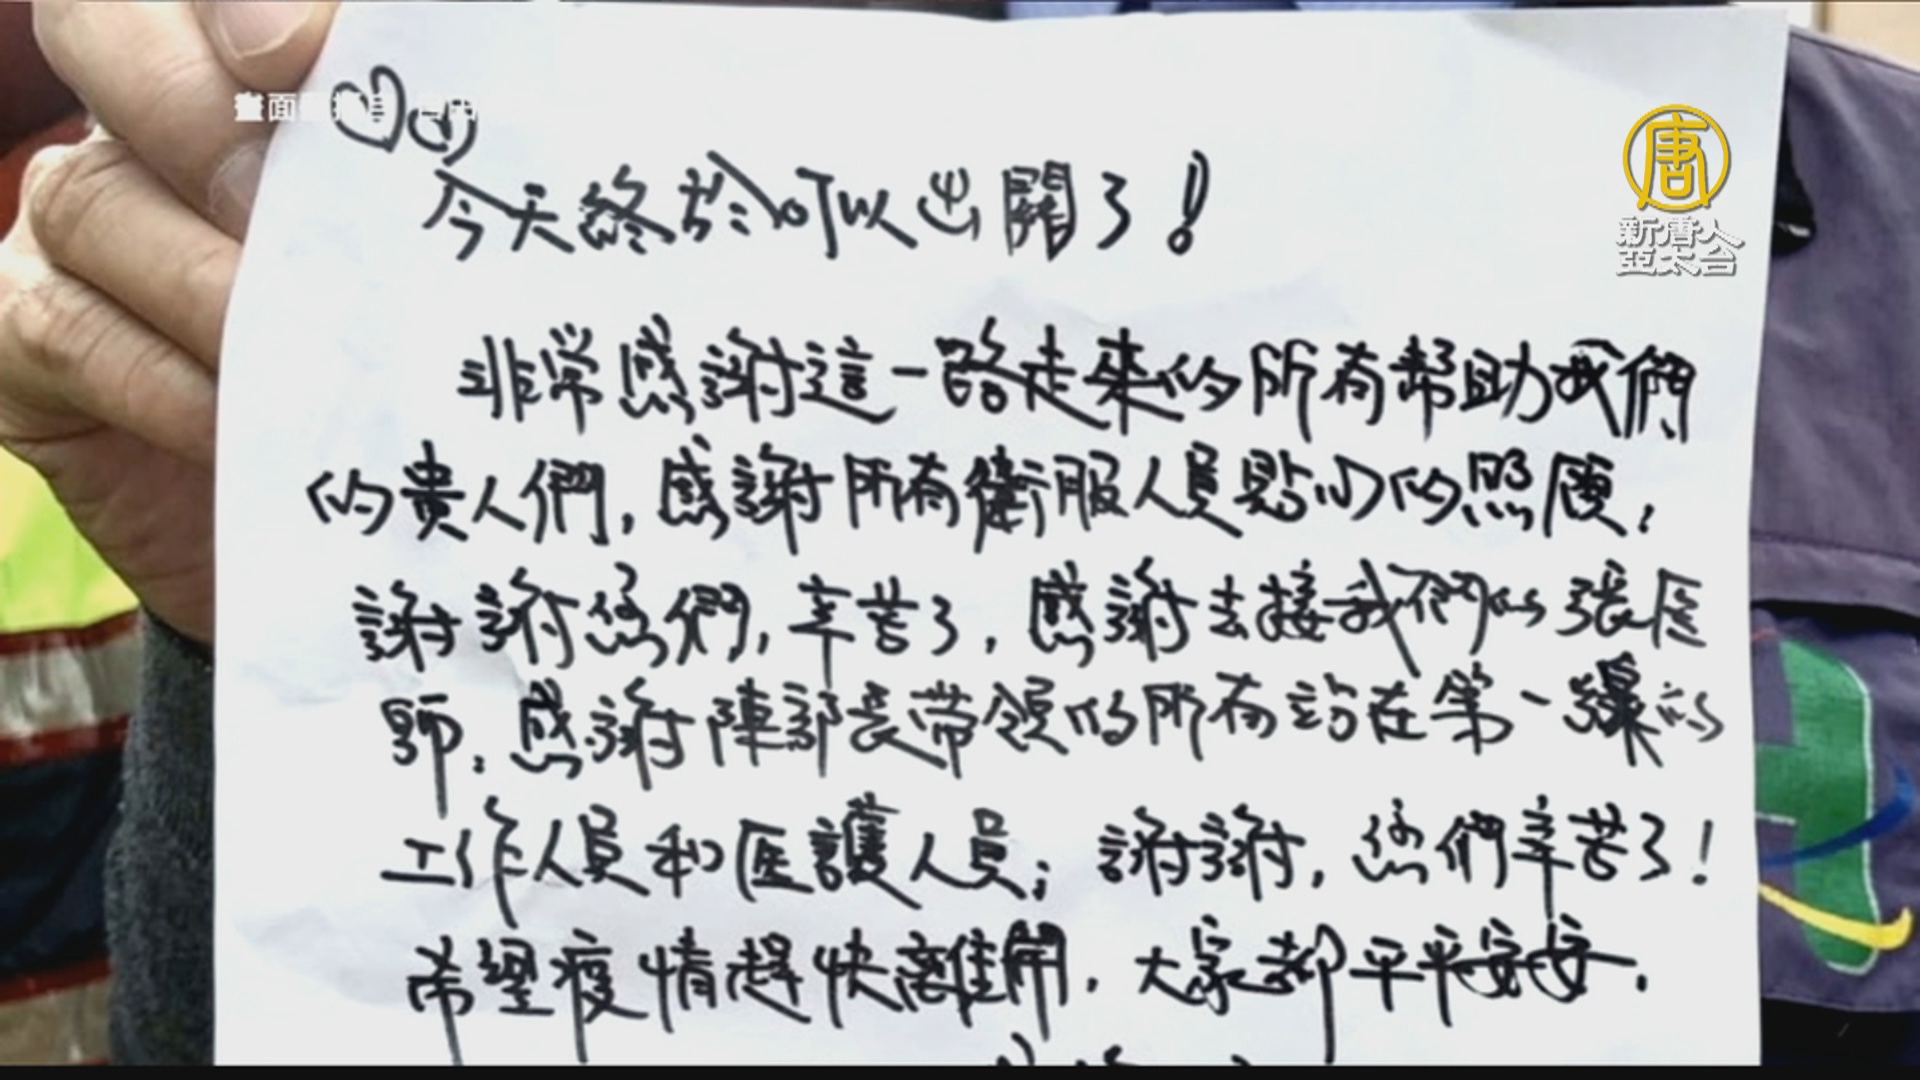 今天終於可以出關了!
非常感謝這一路走來的所有幫助我們
的貴人們,感謝所有衛服人員貼心的照顧,
謝謝您們,辛苦了,感謝去接我們的張医
師,感謝陳部長帶領的所有站在第一線的
工作人員和医護人員;謝謝,您們辛苦了!
希望疫情趕快離開,大家都平平安安.
唐
新唐人
亞太台